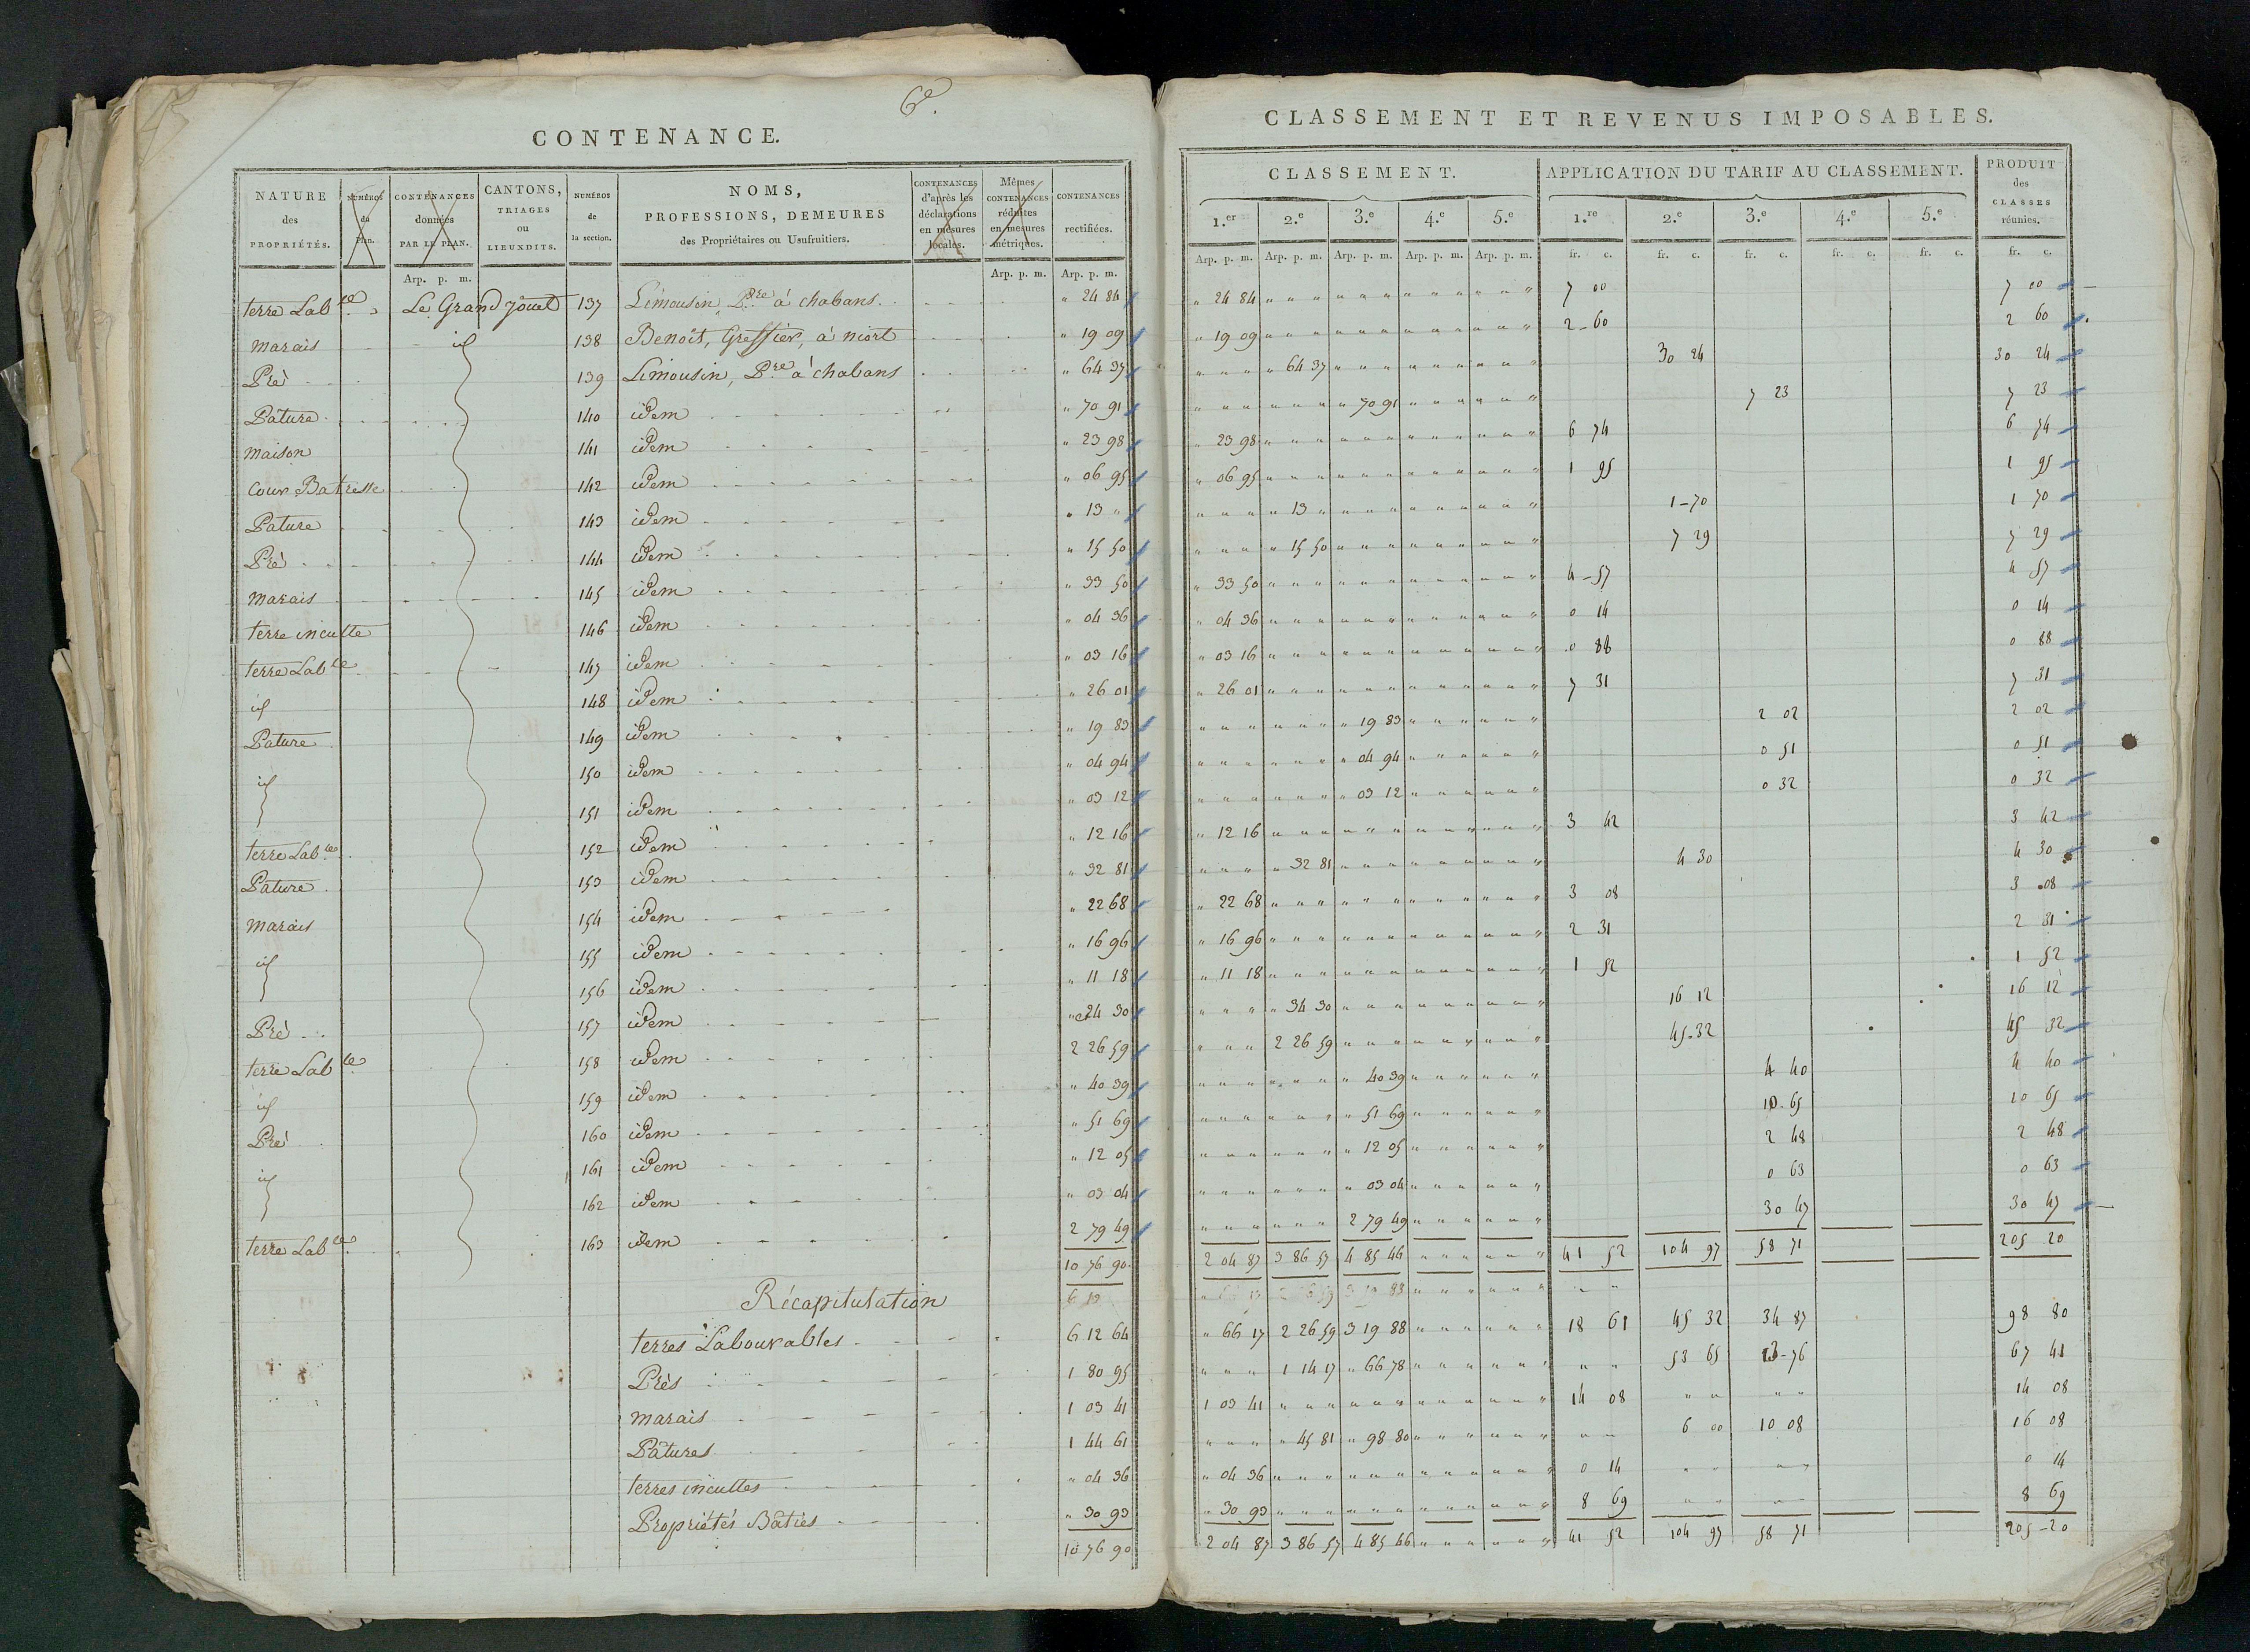 6e.
CONTENANCE.
NATURE des PROPRIÉTÉS. NUMÉROS du Plan. CONTENANCES données PAR LE PLAN. CANTONS, TRIAGES OU LIEUXDITS. NUMÉROS de la section. NOMS, PROFESSIONS, DEMEURES des Propriétaires ou Usufruitiers. CONTENANCES d'après les déclarations en mesures locales. Mêmes CONTENANCES réduites en mesures métriques. CONTENANCES rectifiées.
Arp. p. m. Arp. p. m. Arp. p. m.
terre Lab.le Le Grand jouet 137 Limousin, P.re à chabans " 24 84
marais id 138 Benoît, Greffier, à niort " 19 09
Pré 139 Limousin, P.re à chabans " 64 37
Pâture 140 idem " 70 91
maison 141 idem " 23 98
Cour Batresse 142 idem " 06 95
Pature 143 idem " 13 "
Pré 144 idem " 15 50
marais 145 idem " 33 50
terre inculte 146 idem " 04 36
terre Lab.le 147 idem " 03 16
id 148 idem " 26 01
Pature 149 idem " 19 83
id 150 idem " 04 94
151 idem " 03 12
terre Lab.le 152 idem " 12 16
Pature 153 idem " 32 81
marais 154 idem " 22 68
id 155 idem " 16 96
156 idem " 11 18
Pré 157 idem " 24 30
terre Lab.le 158 idem 2 26 59
id 159 idem " 40 39
Pré 160 idem " 51 69
id 161 idem " 12 05
162 idem " 03 04
terre Lab.le 163 idem 2 79 49
10 76 90
Récapitulation 6 12
terres Labourables 6 12 64
Près 1 80 95
marais 1 03 41
Pâtures 1 44 61
terres incultes " 04 36
Propriétés Baties " 30 93
10 76 90
CLASSEMENT ET REVENUS IMPOSABLES.
CLASSEMENT. APPLICATION DU TARIF AU CLASSEMENT. PRODUIT des CLASSES réunies.
1.er 2.e 3.e 4.e 5.e 1.re 2.e 3.e 4.e 5.e
Arp. p. m. Arp. p. m. Arp. p. m. Arp. p. m. Arp. p. m. fr. c. fr. c. fr. c. fr. c. fr. c. fr. c.
" 24 84 7 00 7 00
" 19 09 2-60 2 60
" 64 37 30 24 30 24
" 70 91 7 23 7 23
" 23 98 6 74 6 74
" 06 95 1 95 1 95
" 13 " 1-70 1 70
" 15 50 7 29 7 29
" 33 50 4-57 4 57
" 04 36 0 14 0 14
" 03 16 0 88 0 88
" 26 01 7 31 7 31
" 19 83 2 02 2 02
" 04 94 0 51 0 51
" 03 12 0 32 0 32
" 12 16 3 42 3 42
" 32 81 4 30 4 30
" 22 68 3 08 3 08
" 16 96 2 31 2 31
" 11 18 1 52 1 52
" 34 30 16 12 16 12
2 26 59 45-32 45 32
" 40 39 4 40 4 40
" 51 69 10-65 10 65
" 12 05 2 48 2 48
" 03 04 0 63 0 63
2 79 49 30 47 30 47
2 04 87 3 86 57 4 85 46 41 52 104 97 58 71 205 20
" 66 17 2 26 59 3 19 88 18 61 45 32 34 87 98 80
1 14 17 " 66 78 " " 53 65 13-76 67 41
1 03 41 14 08 " " " " 14 08
" 45 81 " 98 80 " " 6 00 10 08 16 08
" 04 36 0 14 " " " " 0 14
" 30 93 8 69 " " " " 8 69
2 04 87 3 86 57 4 85 46 41 52 104 97 58 71 205-20